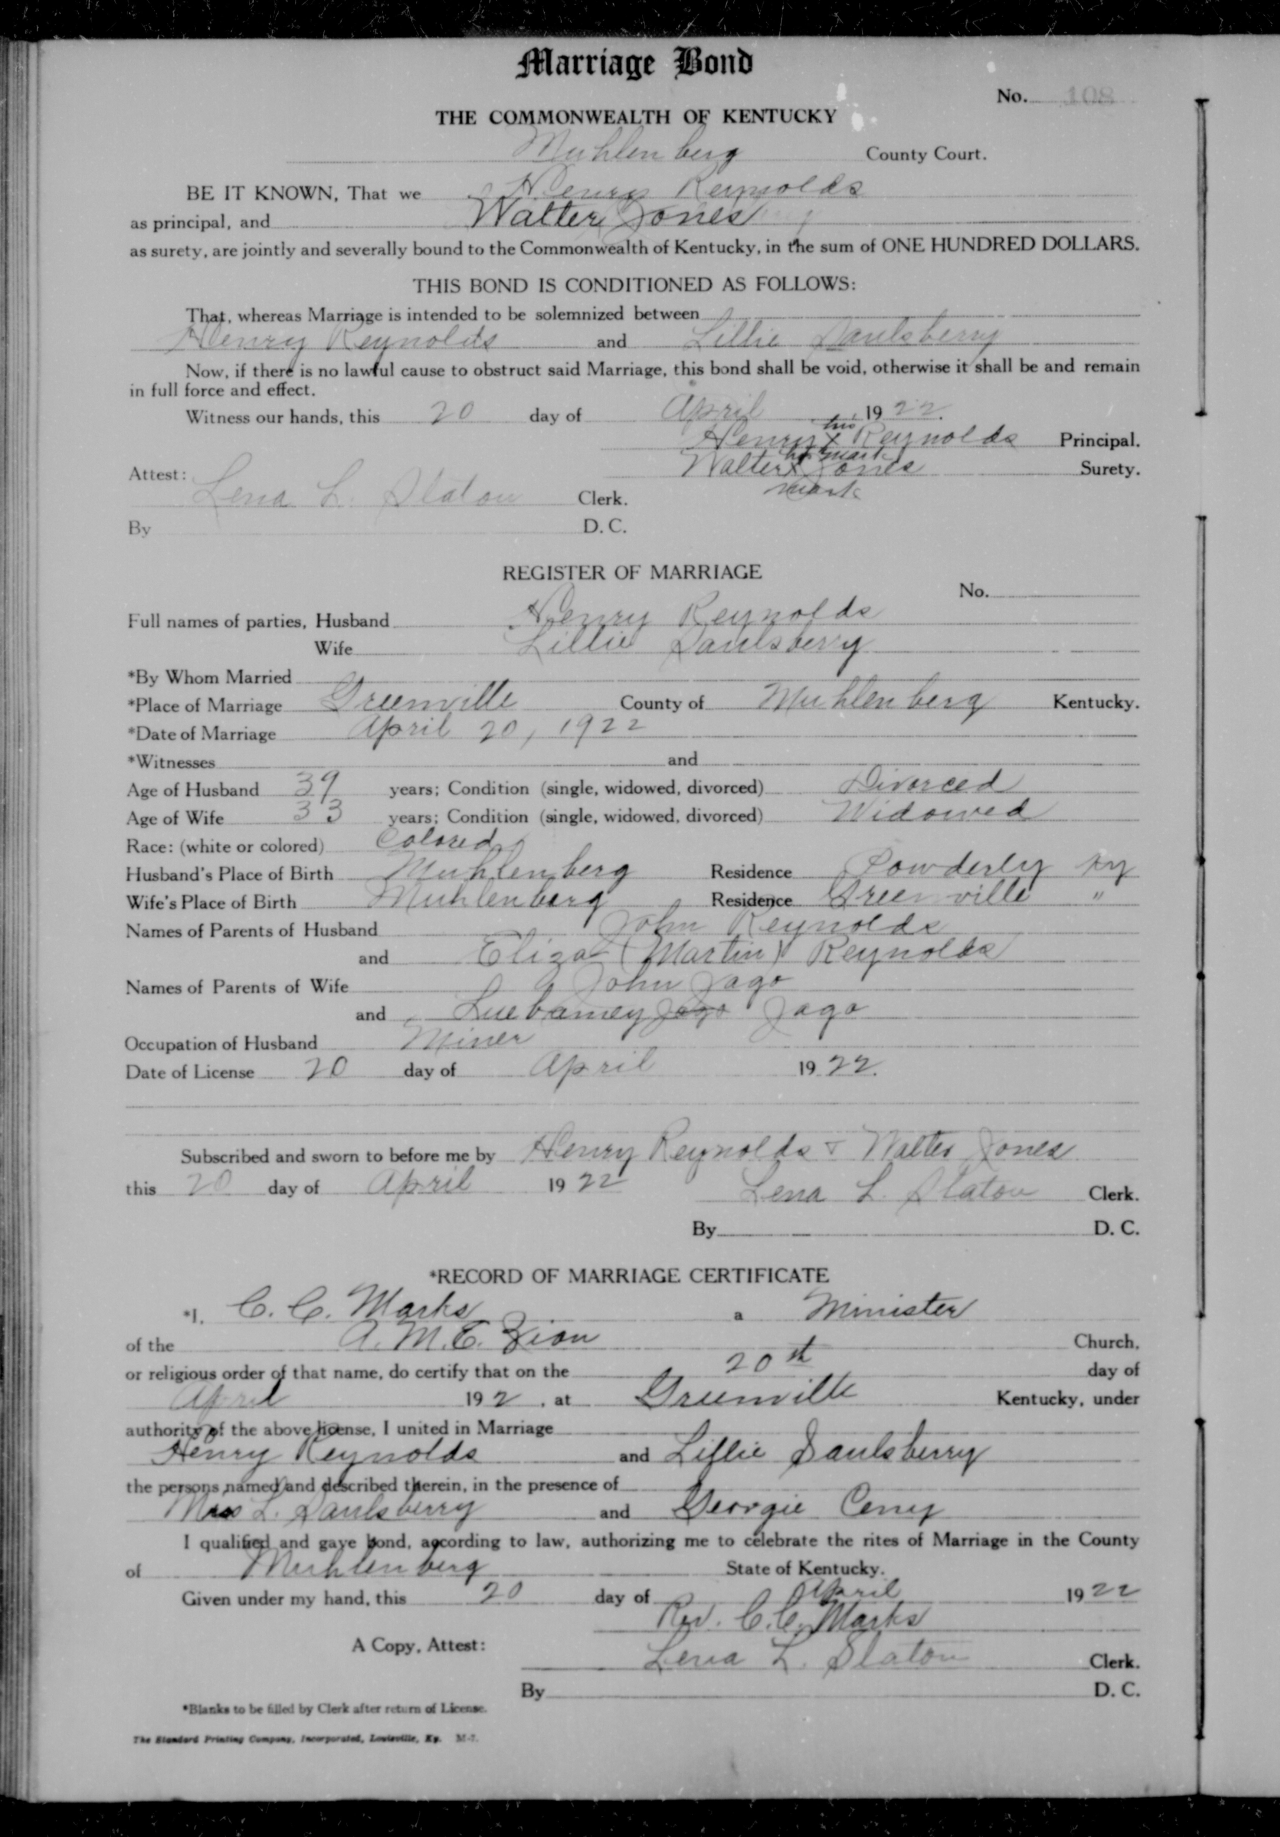 Marriage Bond
No. 108
THE COMMONWEALTH OF KENTUCKY
Muhlenberg County Court.
BE IT KNOWN, That we Henry Reynolds
as principal, and Walter Jones
as surety, are jointly and severally bound to the Commonwealth of Kentucky, in the sum of ONE HUNDRED DOLLARS.
THIS BOND IS CONDITIONED AS FOLLOWS:
That, whereas Marriage is intended to be solemnized between
Henry Reynolds and Lillie Saulsberry
Now, if there is no lawful cause to obstruct said Marriage, this bond shall be void, otherwise it shall be and remain
in full force and effect.
Witness our hands, this 20 day of April, 1922.
his
Henry X Reynolds Principal.
his mark
Walter X Jones Surety.
mark
Attest: Lena L. Slaton Clerk.
By D. C.
REGISTER OF MARRIAGE
No.
Full names of parties, Husband Henry Reynolds
Wife Lillie Saulsberry
*By Whom Married
*Place of Marriage Greenville County of Muhlenberg Kentucky.
*Date of Marriage April 20, 1922
*Witnesses and
Age of Husband 39 years; Condition (single, widowed, divorced) Divorced
Age of Wife 33 years; Condition (single, widowed, divorced) Widowed
Race: (white or colored) Colored
Husband's Place of Birth Muhlenberg Residence Powderly Ky
Wife's Place of Birth Muhlenberg Residence Greenville "
Names of Parents of Husband John Reynolds
and Eliza (Martin) Reynolds
Names of Parents of Wife John Jago
and Luebamey Jago Jago
Occupation of Husband Miner
Date of License 20 day of April 1922.
Subscribed and sworn to before me by Henry Reynolds & Walter Jones
this 20 day of April 1922
Lena L. Slaton Clerk.
By D. C.
*RECORD OF MARRIAGE CERTIFICATE
*I, C. C. Marks a Minister
of the A. M. E. Zion Church,
or religious order of that name, do certify that on the 20th day of
April 192 , at Greenville Kentucky, under
authority of the above license, I united in Marriage
Henry Reynolds and Lillie Saulsberry
the persons named and described therein, in the presence of
Mrs L. Saulsberry and Georgie
I qualified and gave bond, according to law, authorizing me to celebrate the rites of Marriage in the County
of Muhlenberg State of Kentucky.
Given under my hand, this 20 day of April 1922
Rev. C. C. Marks
A Copy, Attest: Lena L. Slaton Clerk.
By D. C.
*Blanks to be filled by Clerk after return of License.
The Standard Printing Company, Incorporated, Louisville, Ky. M-7.